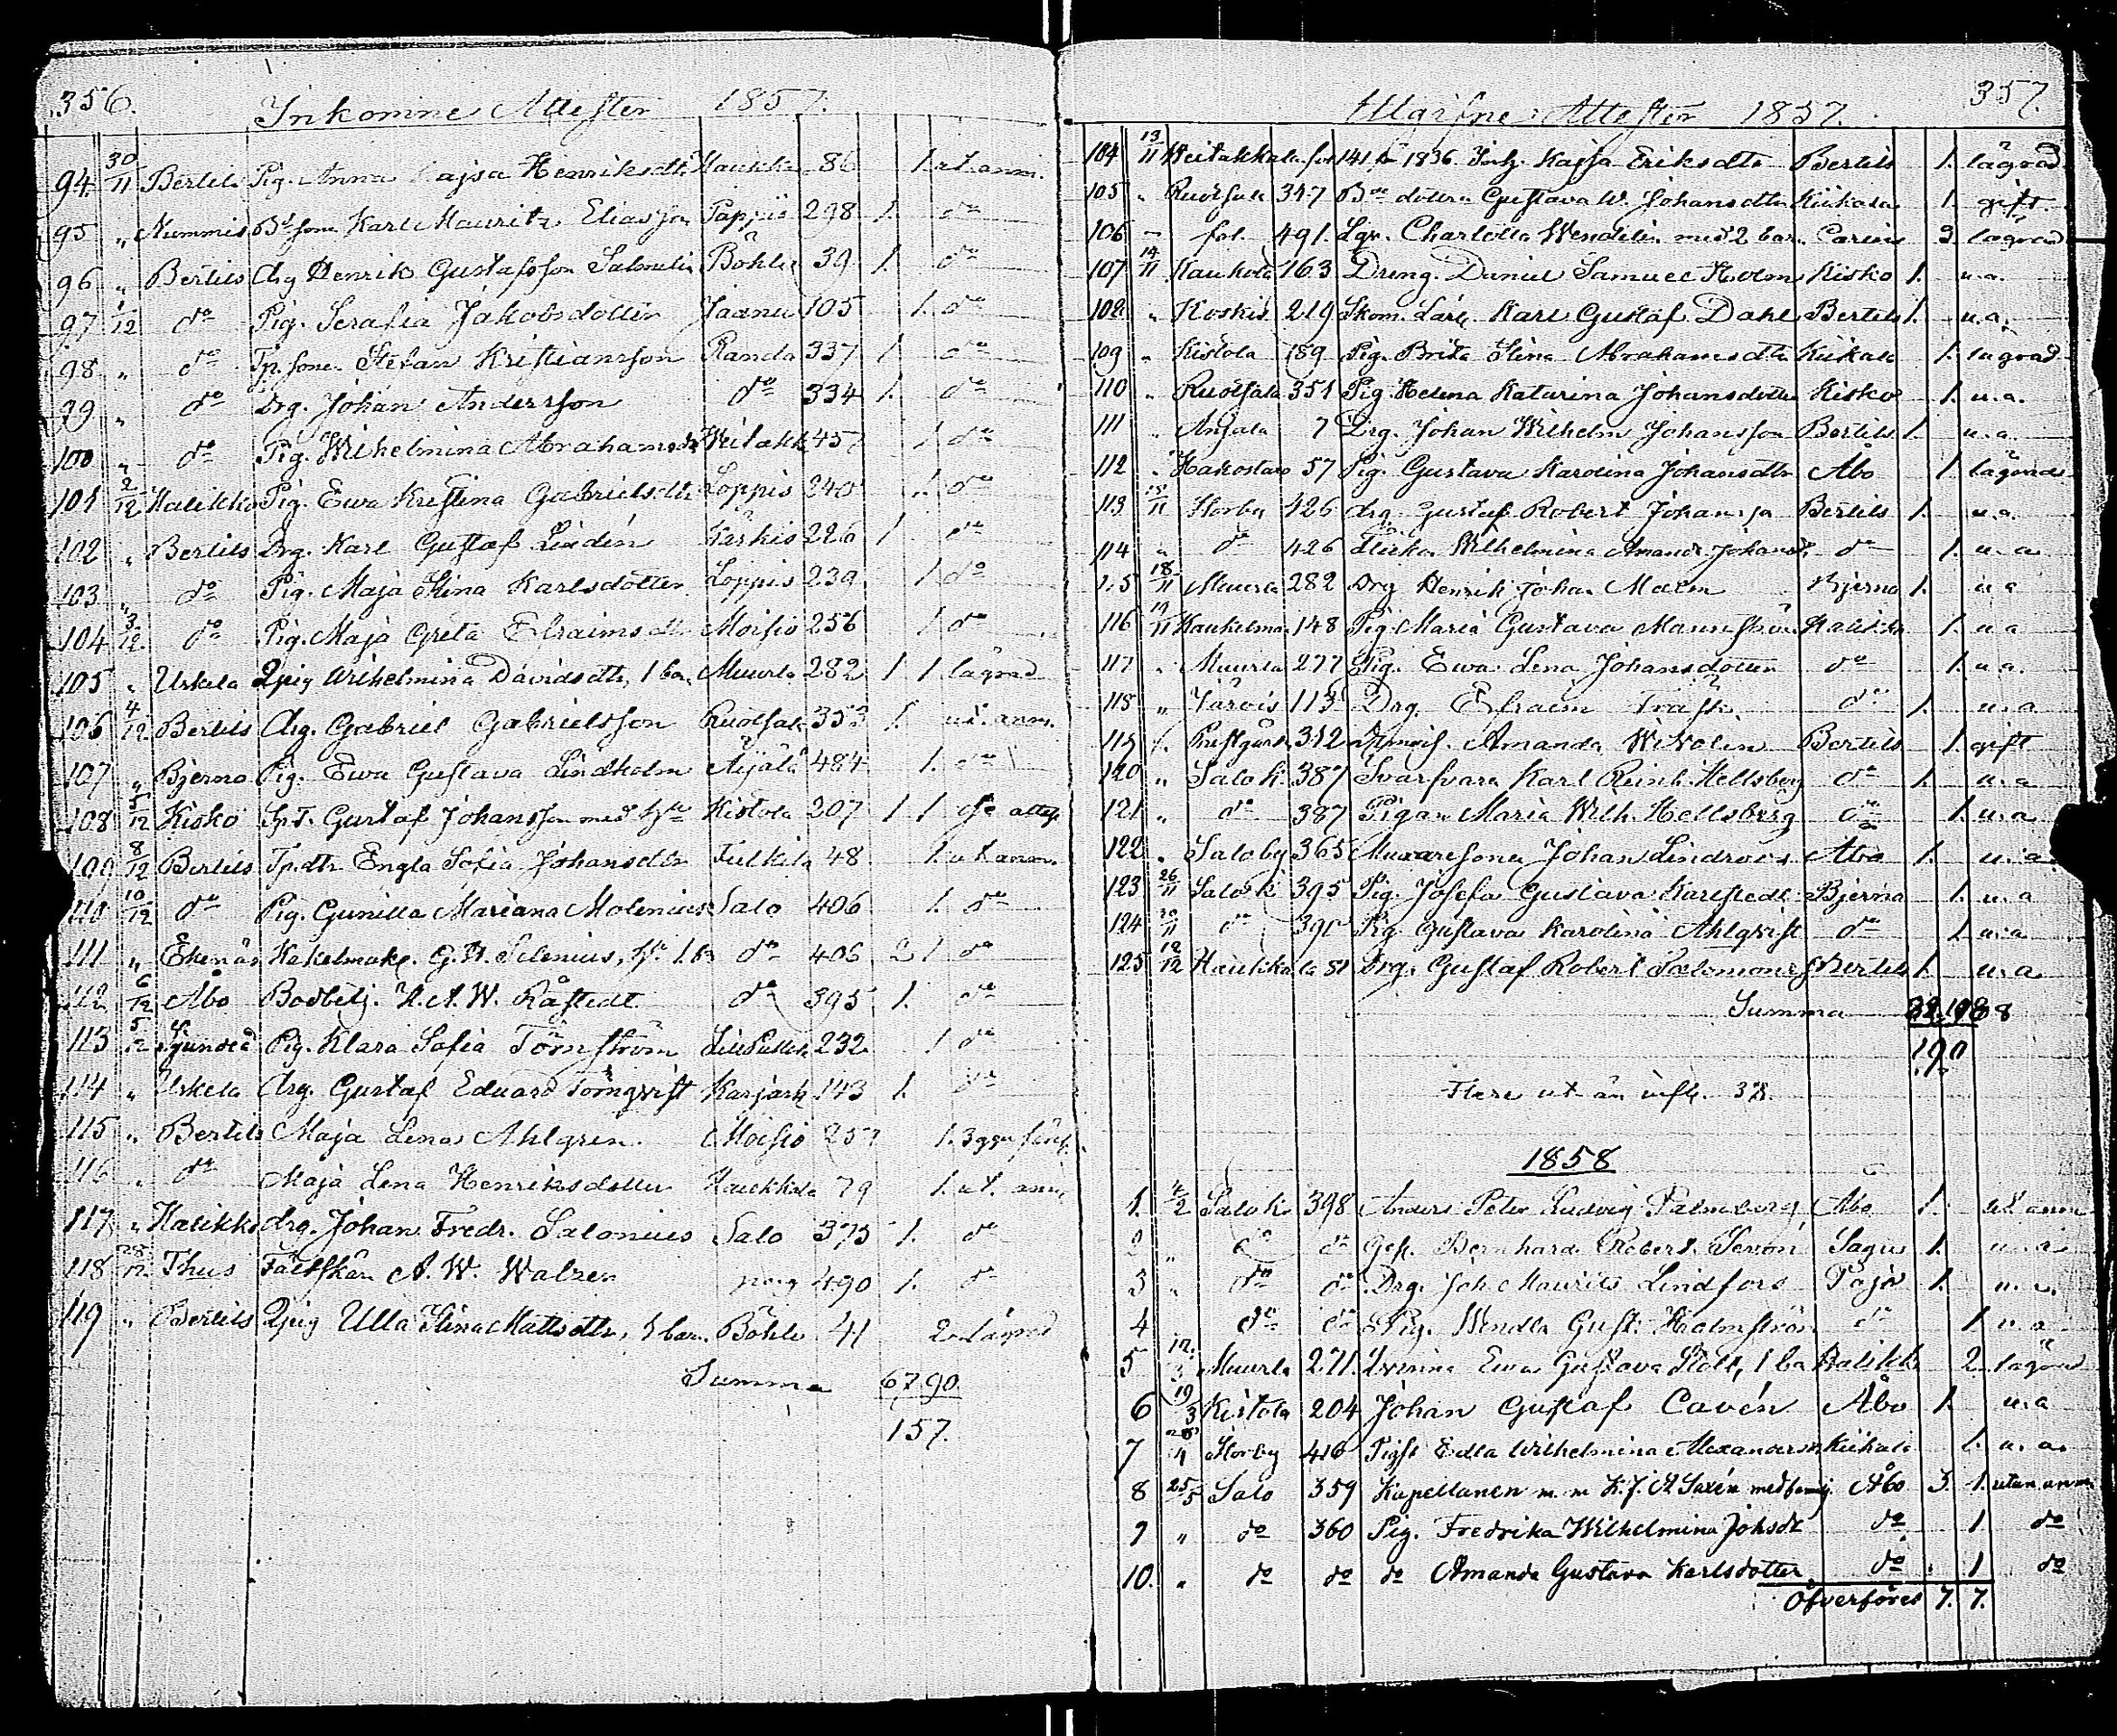 356. Inkomne Attester 1857.
94. 30/11 Bertils Pig. Anna Kajsa Henriksdtr Haukka 86 1. ut. anm.
95 " Nummis Bd sone Karl Mauritz Eliasson Pappis 298 1. do
96 " Bertils drg Henrik Gustafsson Salmelin Böhle 39 1. do
97 1/12 do Pig. Serafia Jakobsdotter Jaanu 105 1. do
98 " do Tp. sone. Stefan Kristiansson Randa 337 1 do
99 " do Drg. Johan Andersson do 334 1. do
100 " do Pig. Wilhelmina Abrahamsdr Weitakk 457 1 do
101 2/12 Halikko Pig. Ewa Kristina Gabrielsdtr Loppis 240 1. do
102 " Bertils Drg. Karl Gustaf Lindén Kärkis 226 1 do
103 " do Pig. Maja Stina Karlsdotter Loppis 239 1. do
104 3/12 do Pig. Maja Greta Efraimsdtr Moisio 256 1 do
105 " Uskela Qpig Wilhelmina Davidsdtr, 1 ba. Muurla 282 1 1 lägrad
106 4/12 Bertils drg. Gabriel Gabrielsson Ruotsala 353 1. ut. anm.
107 " Bjerno Pig. Ewa Gustava Lindholm Äijälä 484 1. do
108 5/12 Kisko Gustaf Johansson med hu Kistola 207 1 1 se attest
109 8/12 Bertils Tp. dtr Engla Sofia Johansdtr Tulkila 48 1. ut anm.
110 10/12 do Pig. Gunilla Mariana Molenius Salo 406 1. do
111 " Ekenäs Kakelmak. G. A. Silenius, hu. 1 ba do 406 2 1 do
112 6/12 Åbo Bodbetj. K. A. W. Råstedt do 395 1. do
113 5/12 Sjundeå Pig. Klara Sofia Törnström 232 1 do
114 " Uskela drg. Gustaf Eduard Törnqvist Karjask 143 1. do
115 " Bertils Maja Lena Ahlgren. Moisio 257 1. 3 ggr
116 " do Maja Lena Henriksdotter Haukkala 79 1. ut. anm.
117 " Halikko drg. Johan Fredr. Salonius Salo 375 1. do
118 28/12 Thus Fältskär A. W. Walzer 490 1. do
119 " Bertils Qpig Ulla Stina Mattsdtr, 1 bar. Böhle 41 2 lägrad
Summa 67.90.
157.
357.
Utgifne Attester 1857.
104 13/11 Weitakkala fol 141 1836 Kajsa Eriksdtr Bertils 1. lägrad
105 " Ruotsala 347 Bde dottren Gustava W. Johansdtr Kiikala 1. gift.
106 – fol. 491. Lgv. Charlotta Wendelin med 2 bar. 3. lägrad
107 14/11 Kaukola 163 Dreng. Daniel Samuel Holm Kisko 1. u. a.
108 " Koskis 219 Skom. Lärl. Karl Gustaf Dahl Bertils 1. u. a.
109 " Kistola 189 Pig. Brita Stina Abrahamsdtr Kiikala 1. lägrad
110 " Ruotsala 351 Pig. Helena Katarina Johansdotter Kisko 1. u. a.
111 " Anjala 7 Drg. Johan Wilhelm Johansson Bertils 1. u. a.
112 " Hakostaro 57 Pig. Gustava Karolina Johansdtr Åbo 1. lägrad
113 15/11 Storby 426 drg. Gustaf Robert Johansson Bertils 1. u. a.
114 " do 426 Flicka Wilhelmina Amanda Johansd. do 1. u. a
115 18/11 Muurla 282 Drg Henrik Johan Malm Bjerno 1. u a
116 19/11 Haukelma 148 Pig. Maria Gustava Mannström Halikko 1. u a
117 " Muurla 277 Pig. Ewa Lena Johansdotter do 1. u. a.
118 " Järvis 113 Drg. Efraim Träsk. do 1. u. a
119 " Prestgård. 312 Amanda Wivolin Bertils 1. gift
120 " Salo k. 387 Svarfvare Karl Reinh. Hellsberg do 1. u. a
121 " do 387 Pigan Maria Wilh. Hellsberg do 1. u. a
122 " Salo by 365 Muraresonen Johan Lindroos Åbo 1. u. a
123 26/11 Salo k. 395 Pig. Josefa Gustava Karlstedt Bjerna 1. u. a
124 30/11 do 390 Pig. Gustava Karolina Ahlqvist do 1 u. a
125 12/12 Haukkala 81 Drg. Gustaf Robert Salomonss Bertils 1. u. a
Summa
190
Flere ut än infl. 38.
1858
1. 4/2 Salo k. 398 Anders Peter Ludvig Palmberg Åbo 1. ut anm
2 " do do Ges. Bernhard Robert Sevon Sagu 1. u. a
3 " do do Drg. Joh Maurits Lindfors Pojo 1. u. a.
4 do do Pig. Wendla Gust. Holmström do 1 u. a
5 12/3 Muurla 271. Ewa Gustava Stolt, 1 ba Halikk 2. lägrad
6 19/3 Kistola 204 Johan Gustaf Cavén Åbo 1. u. a
7 20/4 Storby 416 Edla Wilhelmina Alexandersd. Kiikala 1. u. a.
8 25/5 Salo 359 Kapellanen m. m K. J. A Saxén med familj. Åbo 3. 1. utan anm
9 " do 360 Pig. Fredrika Wilhelmina Johsdt do 1 do
10. " do do do Amanda Gustava Karlsdotter do 1 do
Öfverföres 7. 7.